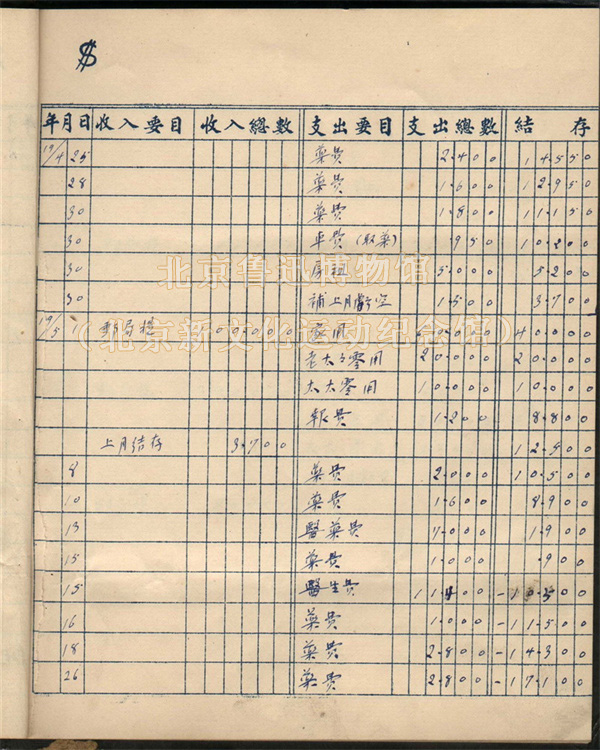 $
年月日 收入要目 收入總數 支出要目 支出總數 結存
19/4 25 藥費 2.400 14.550
28 藥費 1.600 12.950
30 藥費 1.800 11.150
30 車費(取藥) 950 10.200
30 房租 5.000 5.200
30 補上月虧空 1.500 3.700
19/5 郵局提 家用 40.000
老太々零用 20.000 20.000
太太零用 10.000 10.000
報費 1.200 8.800
上月結存 3.700 12.500
8 藥費 2.000 10.500
10 藥費 1.600 8.900
13 醫藥費 7.000 1.900
15 藥費 1.000 .900
15 醫生費 11.400 -10.500
16 藥費 1.000 -11.500
18 藥費 2.800 -14.300
26 藥費 2.800 -17.100
北京鲁迅博物馆
(北京新文化运动纪念馆)